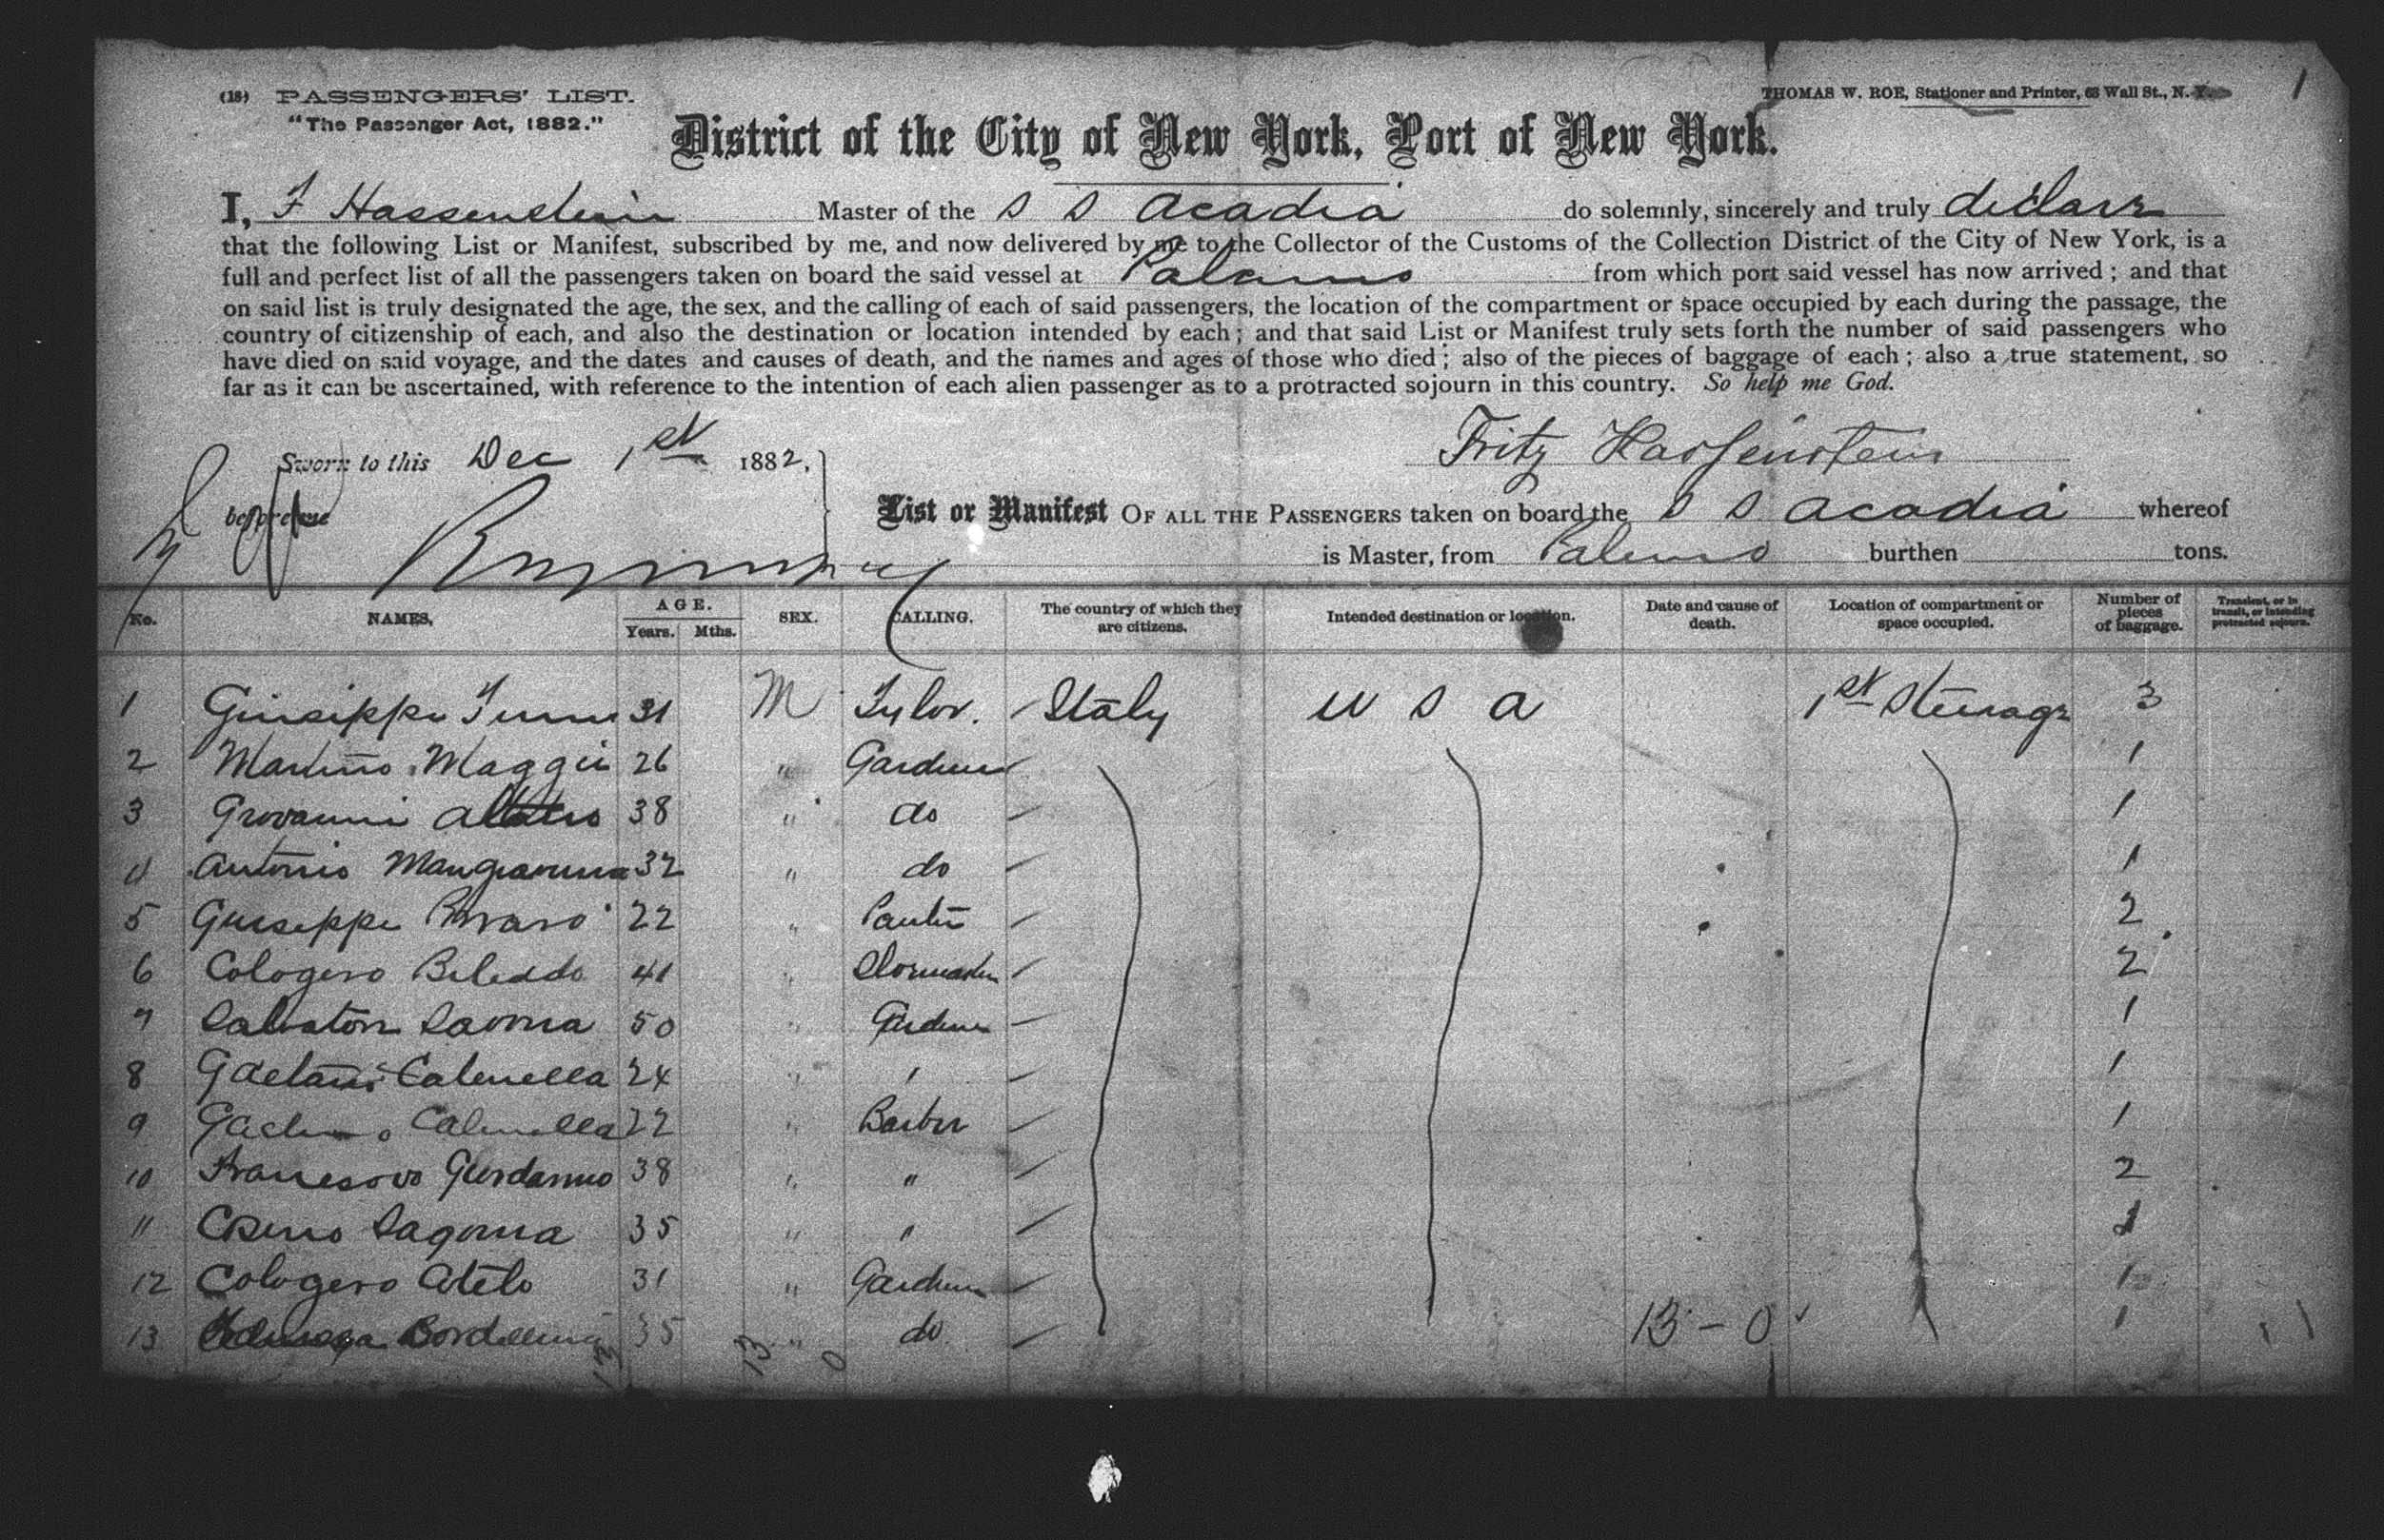 (18) PASSENGERS' LIST.
"The Passenger Act, 1882."
THOMAS W. ROE, Stationer and Printer, 63 Wall St., N. Y.
1
District of the City of New York, Port of New York.
I, F Hassenstein Master of the S S Acadia do solemnly, sincerely and truly declare
that the following List or Manifest, subscribed by me, and now delivered by me to the Collector of the Customs of the Collection District of the City of New York, is a
full and perfect list of all the passengers taken on board the said vessel at Palermo from which port said vessel has now arrived; and that
on said list is truly designated the age, the sex, and the calling of each of said passengers, the location of the compartment or space occupied by each during the passage, the
country of citizenship of each, and also the destination or location intended by each; and that said List or Manifest truly sets forth the number of said passengers who
have died on said voyage, and the dates and causes of death, and the names and ages of those who died; also of the pieces of baggage of each; also a true statement, so
far as it can be ascertained, with reference to the intention of each alien passenger as to a protracted sojourn in this country. So help me God.
Sworn to this Dec 1st 1882,
before me
Fritz Hassenstein
List or Manifest OF ALL THE PASSENGERS taken on board the S S Acadia whereof
is Master, from Palermo burthen tons.
No. NAMES, AGE. Years. Mths. SEX. CALLING. The country of which they are citizens. Intended destination or location. Date and cause of death. Location of compartment or space occupied. Number of pieces of baggage. Transient, or in transit, or intending protracted sojourn.
1 Giuseippe 31 M Tylor. Italy U S A 1st Steerage 3
2 Martino Maggii 26 " Gardener 1
3 Giovanni 38 " do 1
4 Antonio 32 " do 1
5 Guiseppe 22 " Painter 2
6 Cologero Beleddo 41 " 2
7 Salvatore Savona 50 " Gardener 1
8 Gaetano Calenella 24 " " 1
9 Calenella 22 " Barber 1
10 Giordanno 38 " " 2
11 Cosimo Lagoma 35 " " 1
12 Cologero 31 " Gardener 1
13 35 " do 13 - 0 1
13 0